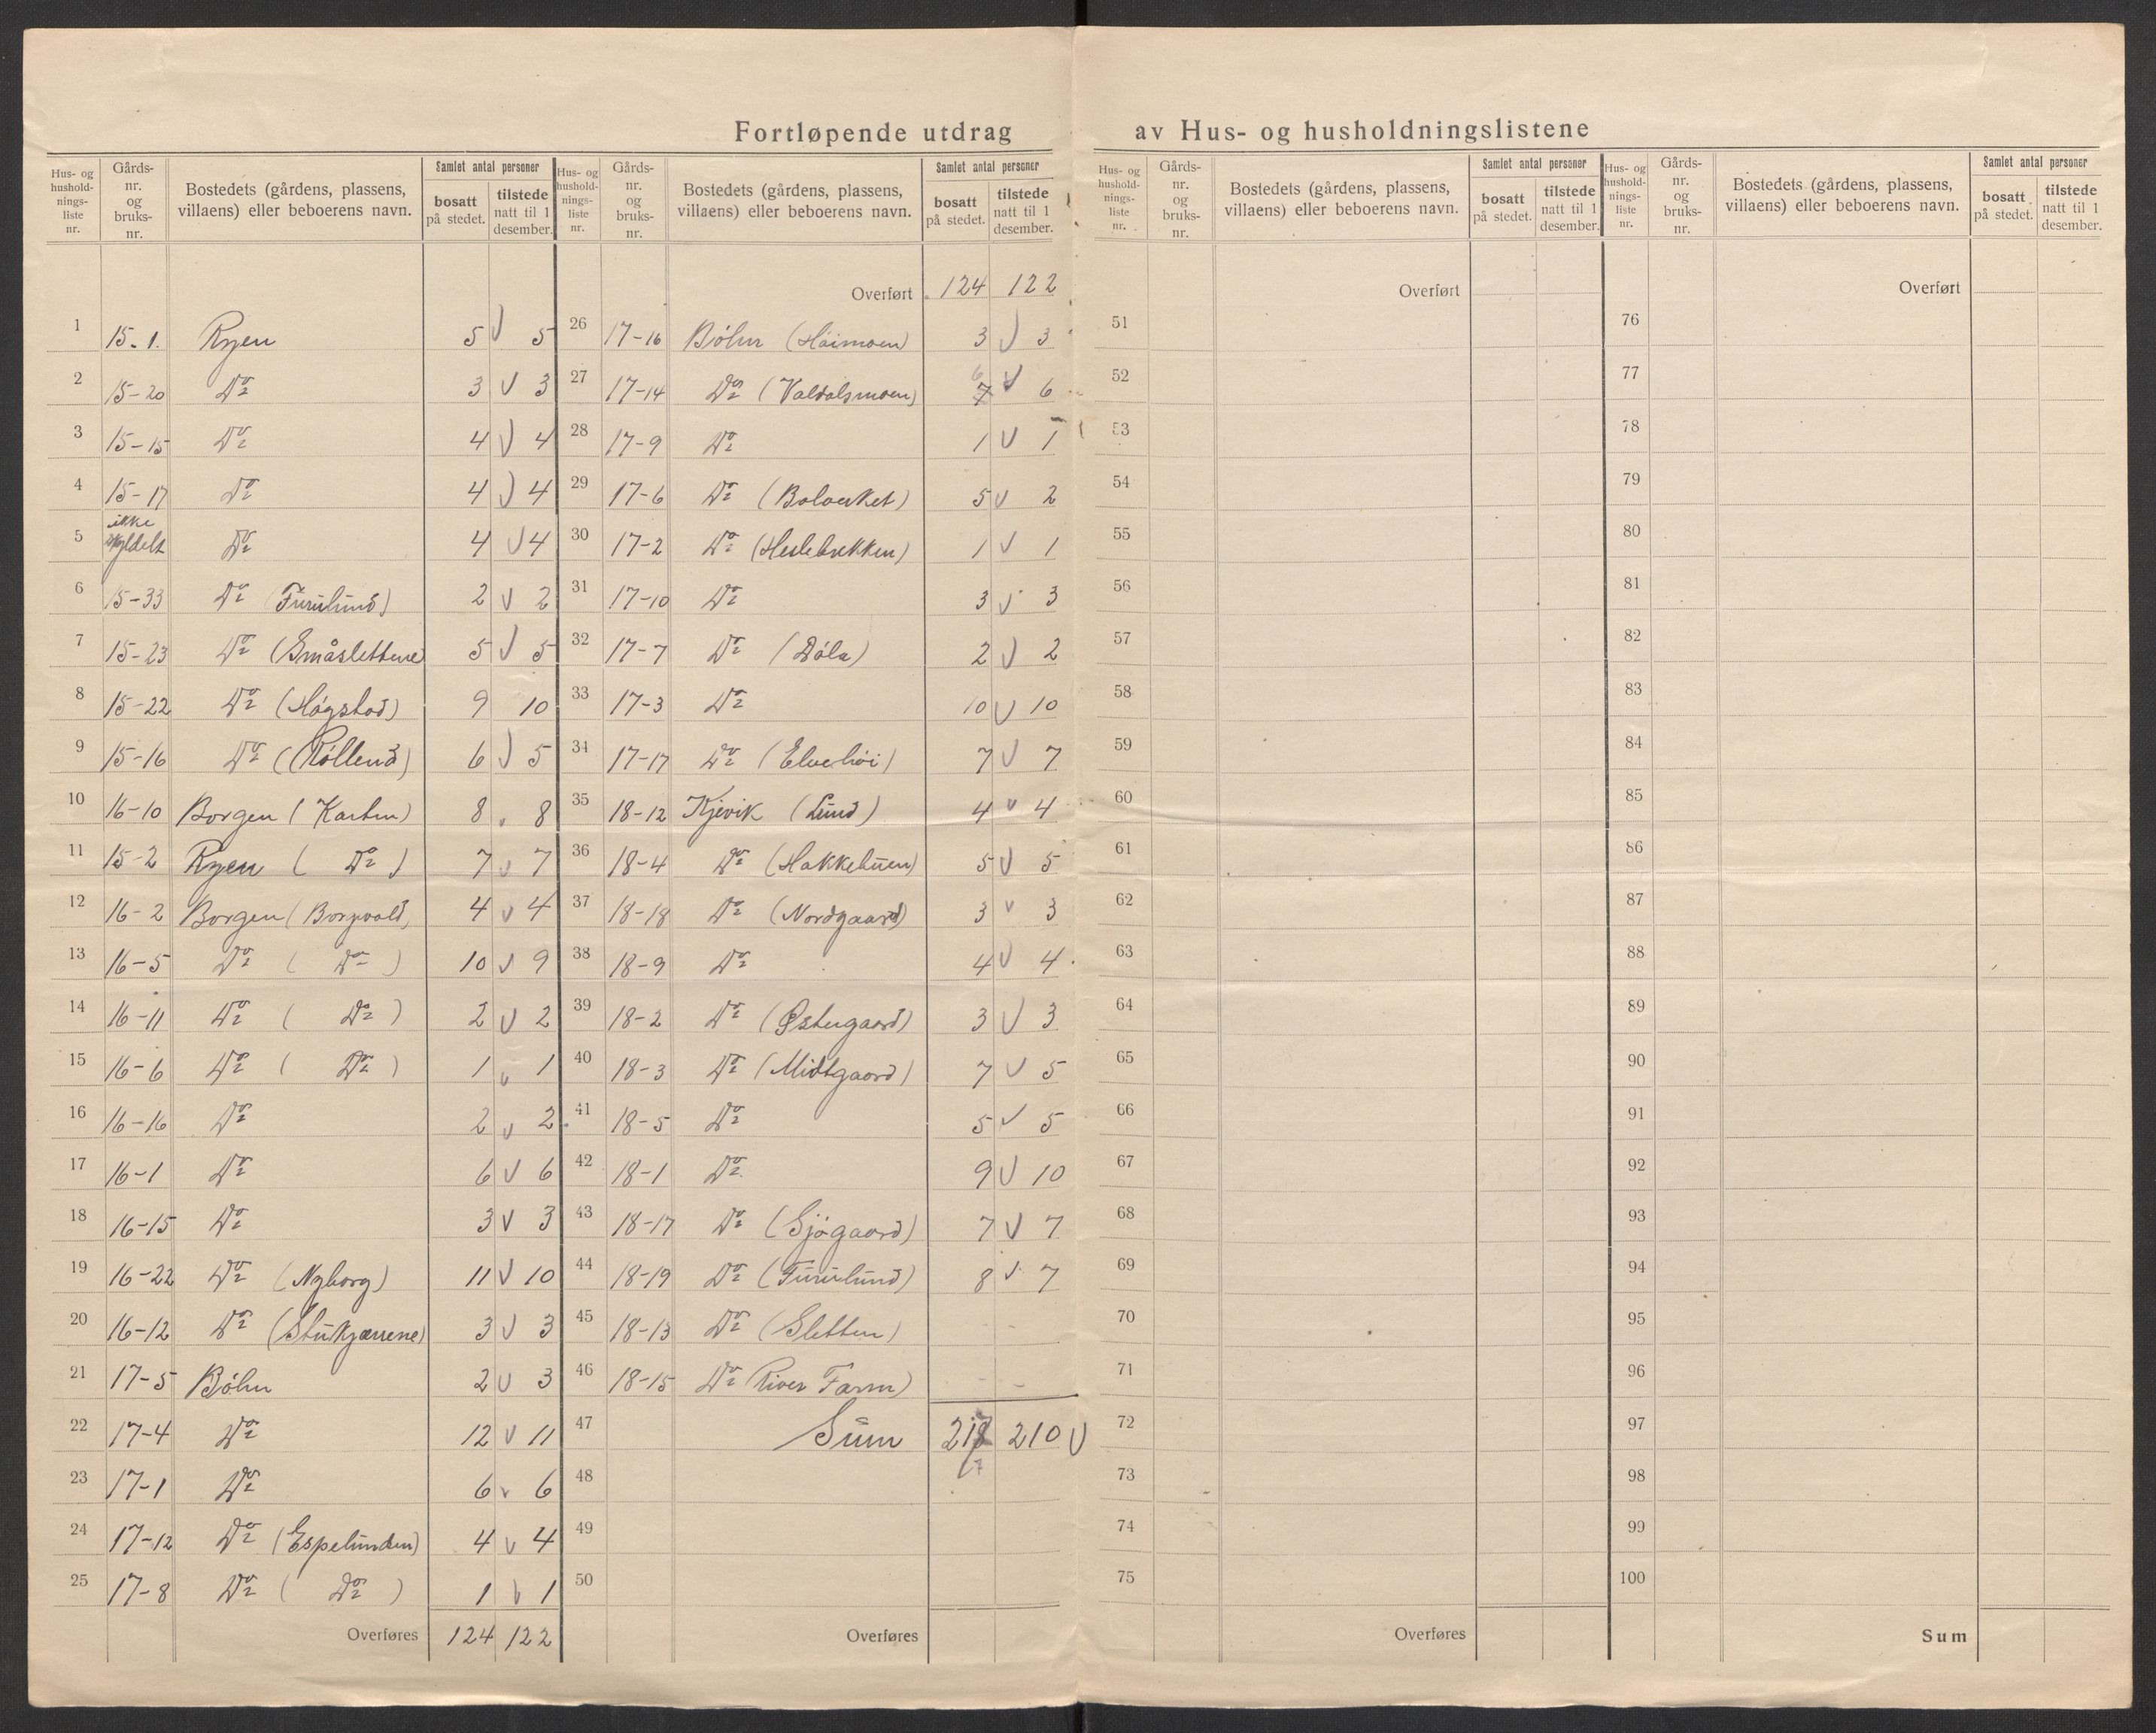 Fortløpende utdrag av Hus- og husholdningslistene
Hus- og hushold-nings-liste nr. Gårds-nr. og bruks-nr. Bostedets (gårdens, plassens, villaens) eller beboerens navn. Samlet antal personer bosatt på stedet. tilstede natt til 1 desember.
1 15-1. Ryen 5 V 5
2 15-20 Do 3 V 3
3 15-15 Do 4 V 4
4 15-17 Do 4 V 4
5 ikke skyldelt Do 4 V 4
6 15-33 Do (Furulund) 2 V 2
7 15-23 Do (Småslettene) 5 V 5
8 15-22 Do (Høgstad) 9 10
9 15-16 Do (Røllend) 6 V 5
10 16-10 Borgen (Karten) 8 8
11 15-2 Ryen ( Do ) 7 V 7
12 16-2 Borgen (Borgvold) 4 V 4
13 16-5 Do ( Do ) 10 V 9
14 16-11 Do ( Do ) 2 V 2
15 16-6 Do ( Do ) 1 V 1
16 16-16 Do 2 V 2
17 16-1 Do 6 V 6
18 16-15 Do 3 V 3
19 16-22 Do (Nyborg) 11 V 10
20 16-12 Do (Stukjærrene) 3 V 3
21 17-5 Bøhn 2 V 3
22 17-4 Do 12 V 11
23 17-1 Do 6 V 6
24 17-12 Do (Espelunden) 4 V 4
25 17-8 Do ( Do ) 1 V 1
Overføres 124 122
Hus- og hushold-nings-liste nr. Gårds-nr. og bruks-nr. Bostedets (gårdens, plassens, villaens) eller beboerens navn. Samlet antal personer bosatt på stedet. tilstede natt til 1 desember.
Overført 124 122
26 17-16 Bøhn (Høimoen) 3 V 3
27 17-14 Do (Valdalsmoen) 7 6 V 6
28 17-9 Do 1 V 1
29 17-6 Do (Bolverket) 5 V 2
30 17-2 Do (Heslebrekken) 1 V 1
31 17-10 Do 3 V 3
32 17-7 Do (Bøla) 2 V 2
33 17-3 Do 10 V 10
34 17-17 Do (Elvehøi) 7 V 7
35 18-12 Kjevik (Lund) 4 V 4
36 18-4 Do (Hakkehuen) 5 V 5
37 18-18 Do (Nordgaard) 3 V 3
38 18-9 Do 4 V 4
39 18-2 Do (Østergaard) 3 V 3
40 18-3 Do (Midtgaard) 7 V 5
41 18-5 Do 5 V 5
42 18-1 Do 9 V 10
43 18-17 Do (Sjøgaard) 7 V 7
44 18-19 Do (Furulund) 8 V 7
45 18-13 Do (Sletten) - -
46 18-15 Do River Farm) - -
47 Sum 218 210 V
7
48
49
50
Overføres
Hus- og hushold-nings-liste nr. Gårds-nr. og bruks-nr. Bostedets (gårdens, plassens, villaens) eller beboerens navn. Samlet antal personer bosatt på stedet. tilstede natt til 1 desember.
Overført
51
52
53
54
55
56
57
58
59
60
61
62
63
64
65
66
67
68
69
70
71
72
73
74
75
Overføres
Hus- og hushold-nings-liste nr. Gårds-nr. og bruks-nr. Bostedets (gårdens, plassens, villaens) eller beboerens navn. Samlet antal personer bosatt på stedet. tilstede natt til 1 desember.
Overført
76
77
78
79
80
81
82
83
84
85
86
87
88
89
90
91
92
93
94
95
96
97
98
99
100
Sum